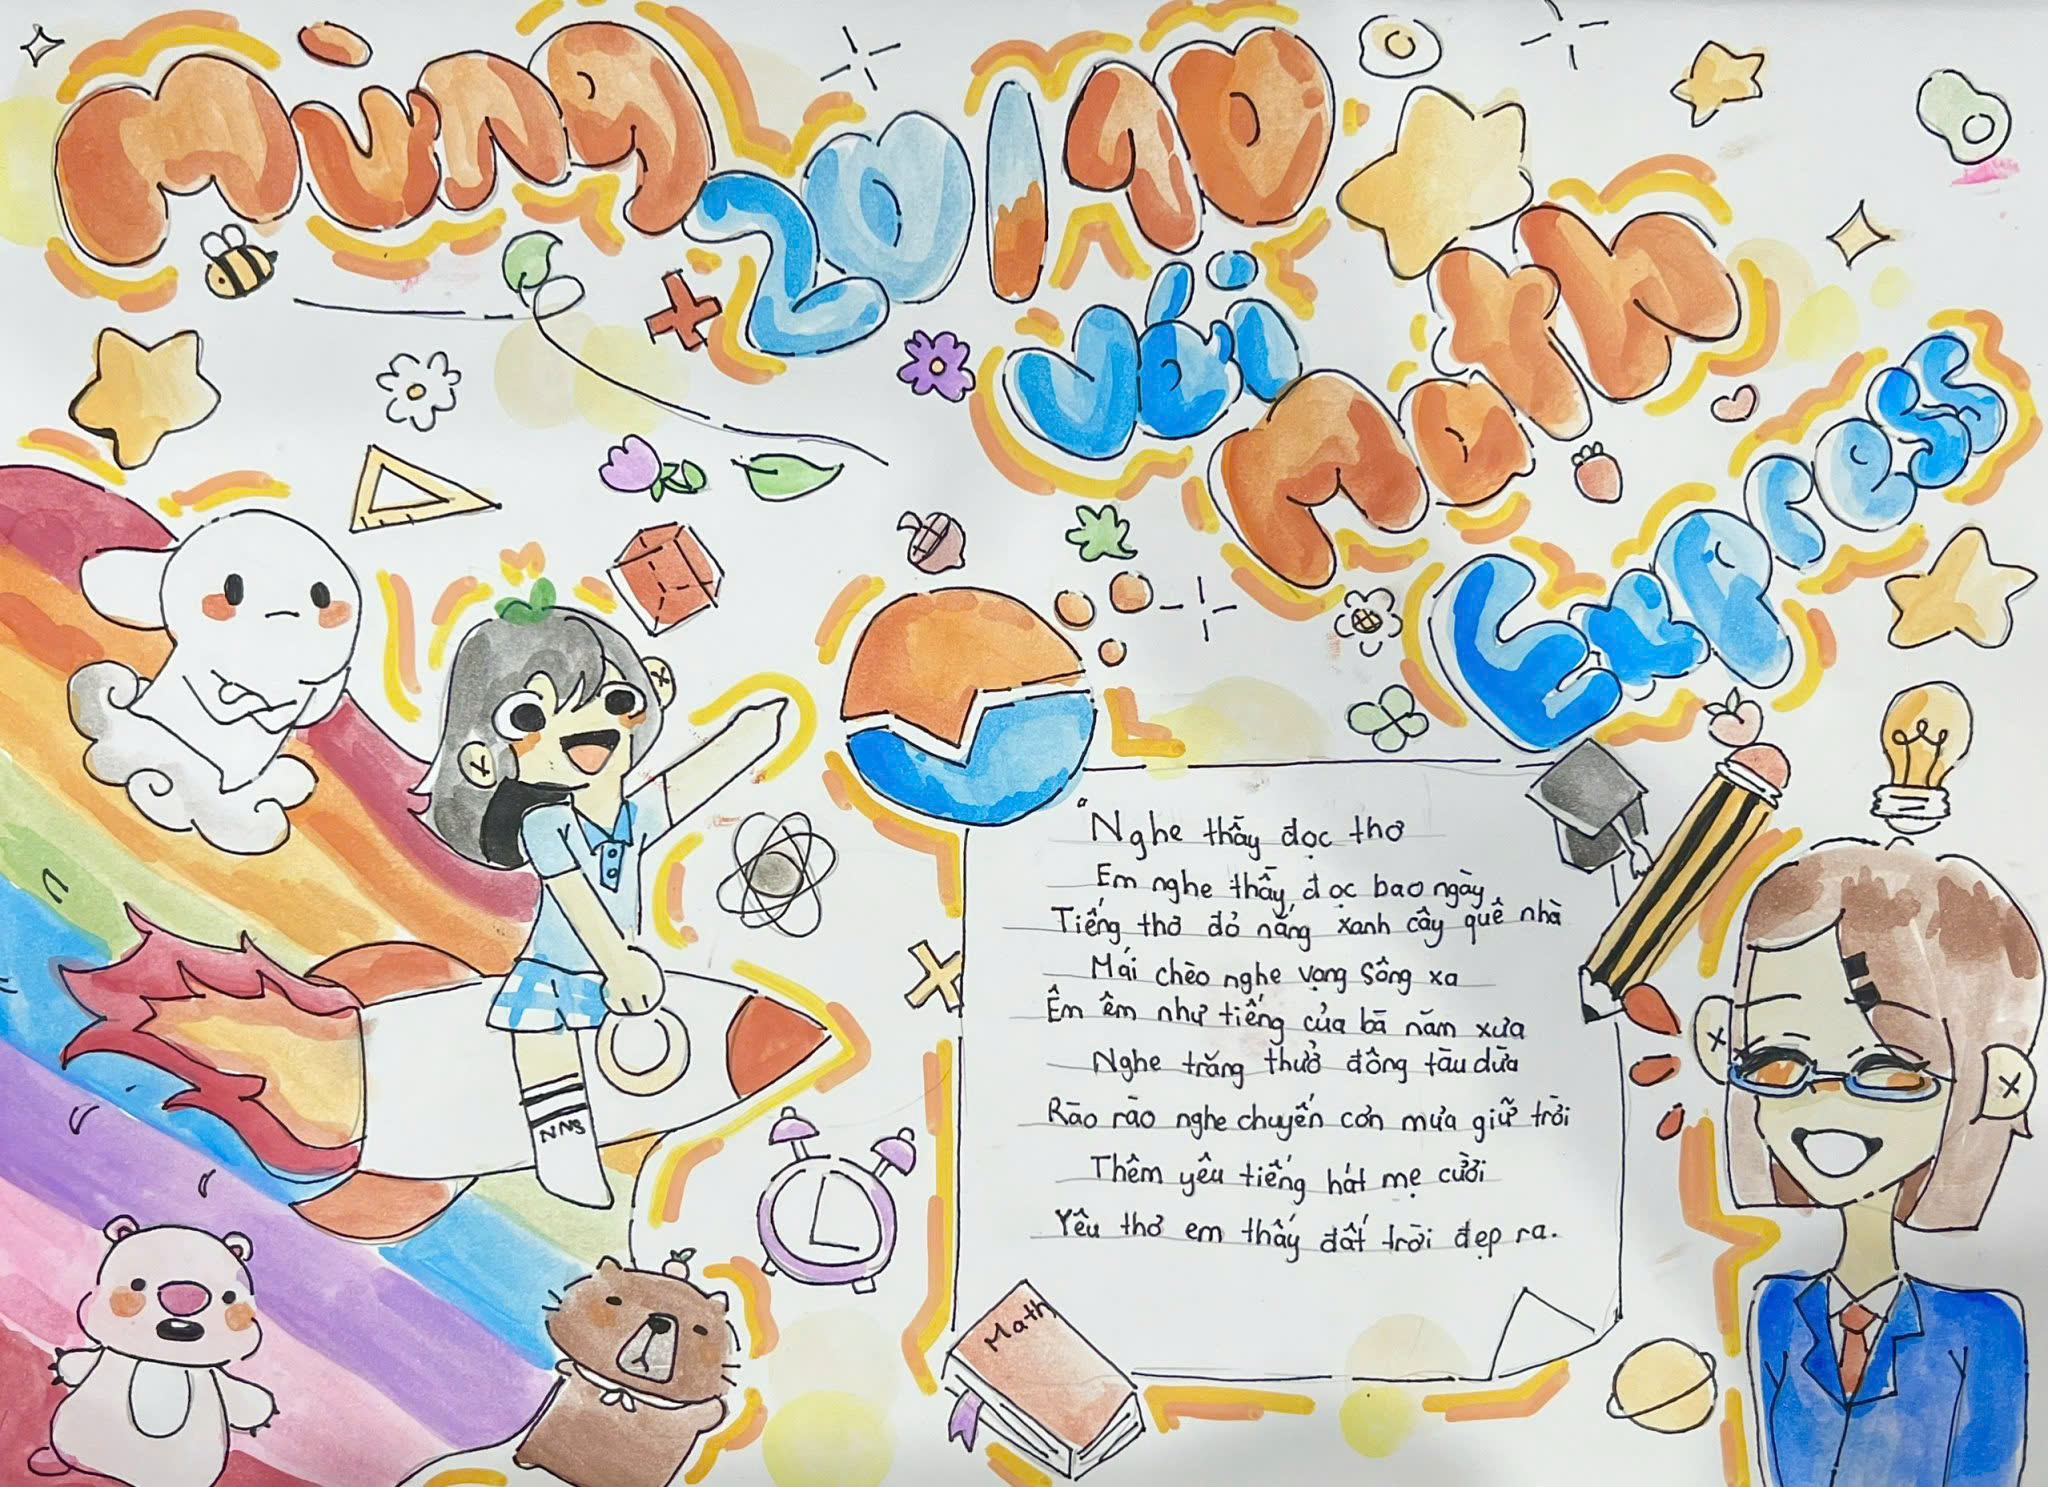 Mừng 20/10
với Math
Express
"Nghe thầy đọc thơ
Em nghe thầy đọc bao ngày
Tiếng thơ đỏ nắng xanh cây quê nhà
Mái chèo nghe vọng sông xa
Êm êm như tiếng của bà năm xưa
Nghe trăng thuở động tàu dừa
Rào rào nghe chuyển cơn mưa giữa trời
Thêm yêu tiếng hát mẹ cười
Yêu thơ em thấy đất trời đẹp ra.
NNS
Math